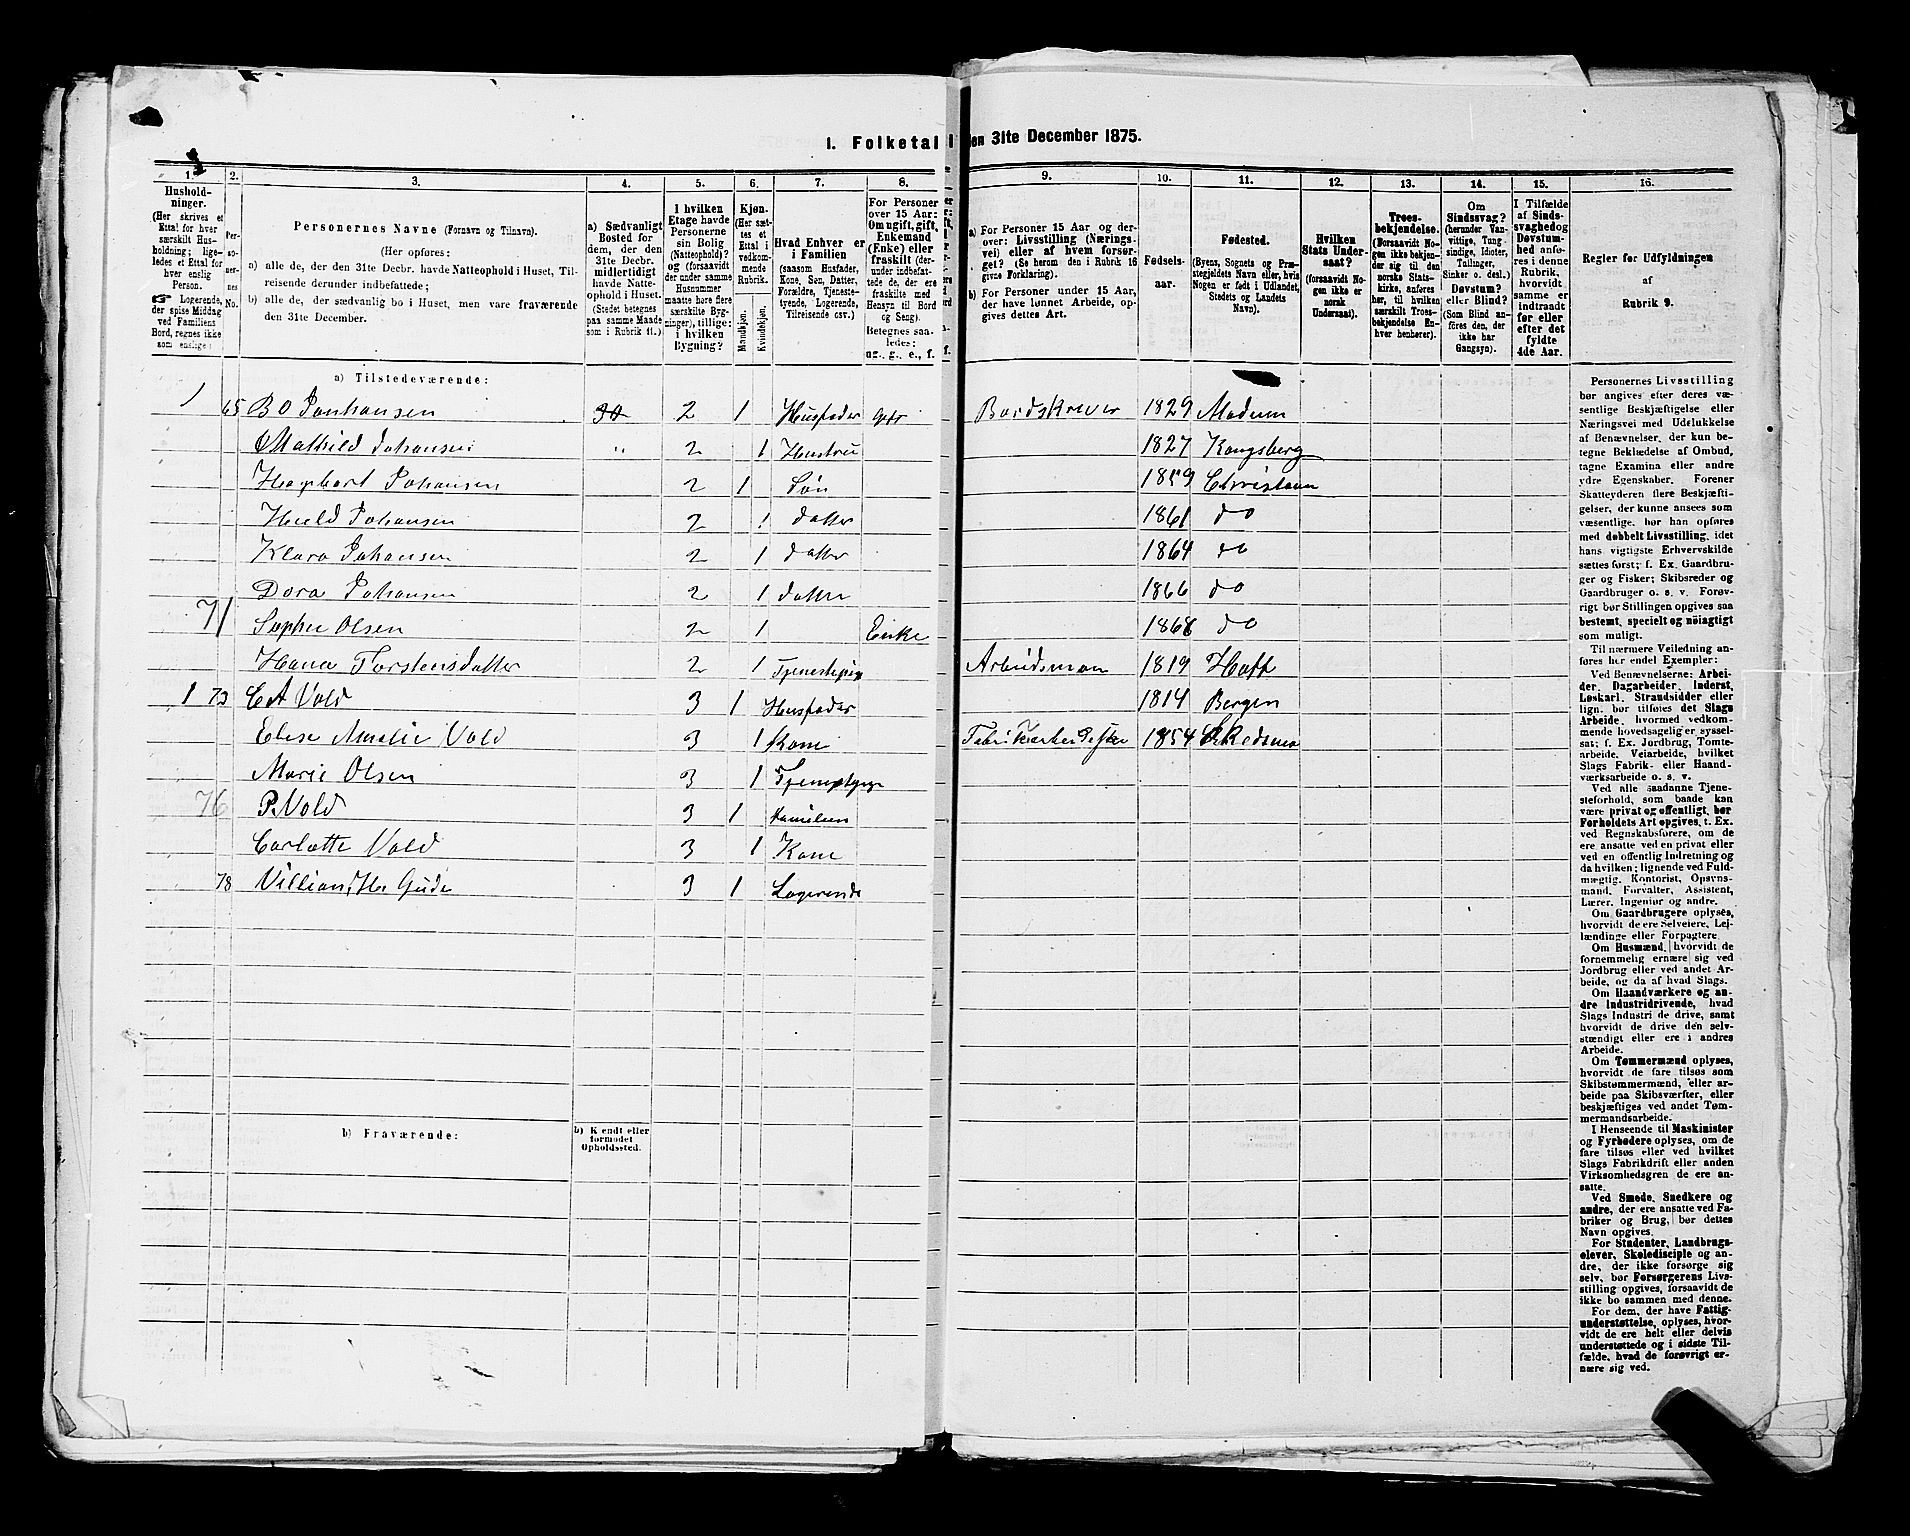 1. Folketal I
den 31te December 1875.
1. 2. 3. 4. 5. 6. 7. 8. 9. 10. 11. 12. 13. 14. 15. 16.
Hushold-
ninger.
(Her skrives et
Ettal for hver
særskilt Hus-
holdning; lige-
ledes et Ettal for
hver enslig
Person.
☞ Logerende,
der spise Middag
ved Familiens
Bord, regnes ikke
som enslige)
Per-
so-
ner-
nes
No.
Personernes Navne (Fornavn og Tilnavn).
(Her opføres:
a) alle de, der den 31te Decbr. havde Natteophold i Huset, Til-
reisende derunder indbefattede;
b) alle de, der sædvanlig bo i Huset, men vare fraværende
den 31te December.
a) Sædvanligt
Bosted for
dem, der den
31te Decbr.
midlertidigt
havde Natte-
ophold i Huset.
(Stedet betegnes
paa samme Maade
som i Rubrik 11.)
I hvilken
Etage havde
Personerne
sin Bolig
(Natteophold)?
og (forsaavidt
der under samme
Husnummer
maatte høre flere
særskilte Byg-
ninger), tillige:
i hvilken
Bygning?
Kjøn.
(Her sæt-
tes et
Ettal i
vedkom-
mende
Rubrik.
Mandkjøn.
Kvindekjøn.
Hvad Enhver er
i Familien
(saasom Husfader,
Kone, Søn, Datter,
Forældre, Tjeneste-
tyende, Logerende,
Tilreisende osv.)
For Personer
over 15 Aar:
Om ugift, gift,
Enkemand
(Enke) eller
fraskilt (der-
under indbefat-
tede de, der ere
fraskilte med
Hensyn til Bord
og Seng).
Betegnes saa-
ledes:
ug., g., e., f.
a) For Personer 15 Aar og der-
over: Livsstilling (Nærings-
vei) eller af hvem forsør-
get? (Se herom den i Rubrik 16
givne Forklaring).
b) For Personer under 15 Aar,
der have lønnet Arbeide, op-
gives dettes Art.
Fødsels-
aar.
Fødested.
(Byens, Sognets og Præ-
stegjeldets Navn eller, hvis
Nogen er født i Udlandet,
Stedets og Landets
Navn).
Hvilken
Stats Under-
saat?
(forsaavidt No-
gen ikke er
norsk
Undersaat).
Troes-
bekjendelse.
(Forsaavidt No-
gen ikke bekjen-
der sig til den
norske Stats-
kirke, anføres
her, til hvilken
særskilt Troes-
bekjendelse En-
hver henhører).
Om
Sindssvag?
(herunder Van-
vittige, Tung-
sindige, Idioter,
Tullinger,
Sinker o. desl.)
Døvstum?
eller Blind?
(Som Blind an-
føres den, der
ikke har
Gangsyn).
I Tilfælde
af Sinds-
svaghed og
Døvstum-
hed anfø-
res i denne
Rubrik,
hvorvidt
samme er
indtraadt
før eller
efter det
fyldte
4de Aar.
Regler før Udfyldningen
af
Rubrik 9.
a) Tilstedeværende:
1 65 B O Johansen 2 1 Husfader gift Bordskriver 1829 Modum
Mathild Johansen " 2 1 Hustru 1827 Kongsberg
Hagbart Johansen 2 1 Søn 1859 Christiania
Johansen 2 1 datter 1861 do
Klara Johansen 2 1 datter 1864 do
Dora Johansen 2 1 datter 1866 do
71 Sophie Olsen 2 1 Enke 1868 do
Hana Torstensdatter 2 1 Tjenestepige Arbeidsman 1819
1 73 Vold 3 1 Husfader 1814 Bergen
Elise Amalie Vold 3 1 Kone 1854 Skedsmo
Marie Olsen 3 1 Tjenestepige
76 P. Vold 3 1
Carlotte Vold 3 1 Kone
78 Gude 3 1 Logerende
b) Fraværende:
b) Kjendt eller
formodet
Opholdssted.
Personernes Livsstilling
bør angives efter deres væ-
sentlige Beskjæftigelse eller
Næringsvei med Udelukkelse
af Benævnelser, der kun be-
tegne Beklædelse af Ombud,
tagne Examina eller andre
ydre Egenskaber. Forener
Skatteyderen flere Beskjæfti-
gelser, der kunne ansees som
væsentlige, bør han opføres
med dobbelt Livsstilling, idet
hans vigtigste Erhvervskilde
sættes først; f. Ex. Gaardbru-
ger og Fisker; Skibsreder og
Gaardbruger o. s. v. Forøv-
rigt bør Stillingen opgives saa
bestemt, specielt og nöiagtigt
som muligt.
Til nærmere Veiledning an-
føres her endel Exempler:
Ved Benævnelserne: Arbei-
der, Dagarbeider, Inderst,
Løskarl, Strandsidder eller
lign. bør tilføies det Slags
Arbeide, hvormed vedkom-
mende hovedsagelig er syssel-
sat; f. Ex. Jordbrug, Tomte-
arbeide, Veiarbeide, hvilket
Slags Fabrik- eller Haand-
værksarbeide o. s. v.
Ved alle saadanne Tjene-
steforhold, som baade kan
være privat og offentligt, bør
Forholdets Art opgives, t. Ex.
ved Regnskabsførere, om de
ere ansatte ved en privat eller
ved en offentlig Indretning og
da hvilken; lignende ved Fuld-
mægtig, Kontorist, Opsyns-
mand, Forvalter, Assistent,
Lærer, Ingeniør og andre.
Om Gaardbrugere oplyses,
hvorvidt de ere Selveiere, Lei-
lændinge eller Forpagtere.
Om Husmænd, hvorvidt de
fornemmelig ernære sig ved
Jordbrug eller ved andet Ar-
beide, og da af hvad Slags.
Om Haandværkere og an-
dre Industridrivende, hvad
Slags Industri de drive, samt
hvorvidt de drive den selv-
stændigt eller ere i andres
Arbeide.
Om Tømmermænd oplyses,
hvorvidt de fare tilsøs som
Skibstømmermænd, eller ar-
beide paa Skibsværfter, eller
beskjæftiges ved andet Tøm-
mermandsarbeide.
I Henseende til Maskinister
og Fyrbødere oplyses, om de
fare tilsøs eller ved hvilket
Slags Fabrikdrift eller anden
Virksomhedsgren de ere an-
satte.
Ved Smede, Snedkere og
andre, der ere ansatte ved Fa-
briker og Brug, bør dettes
Navn opgives.
For Studenter, Landbrugs-
elever, Skoledisciple og an-
dre, der ikke forsørge sig
selv, bør Forsørgerens Livs-
stilling opgives, forsaavidt de
ikke bo sammen med denne.
For dem, der have Fattig-
understøttelse, oplyses, hvor-
vidt de ere helt eller delvis
understøttede og i sidste Til-
fælde, hvad de forøvrigt er-
nære sig ved.